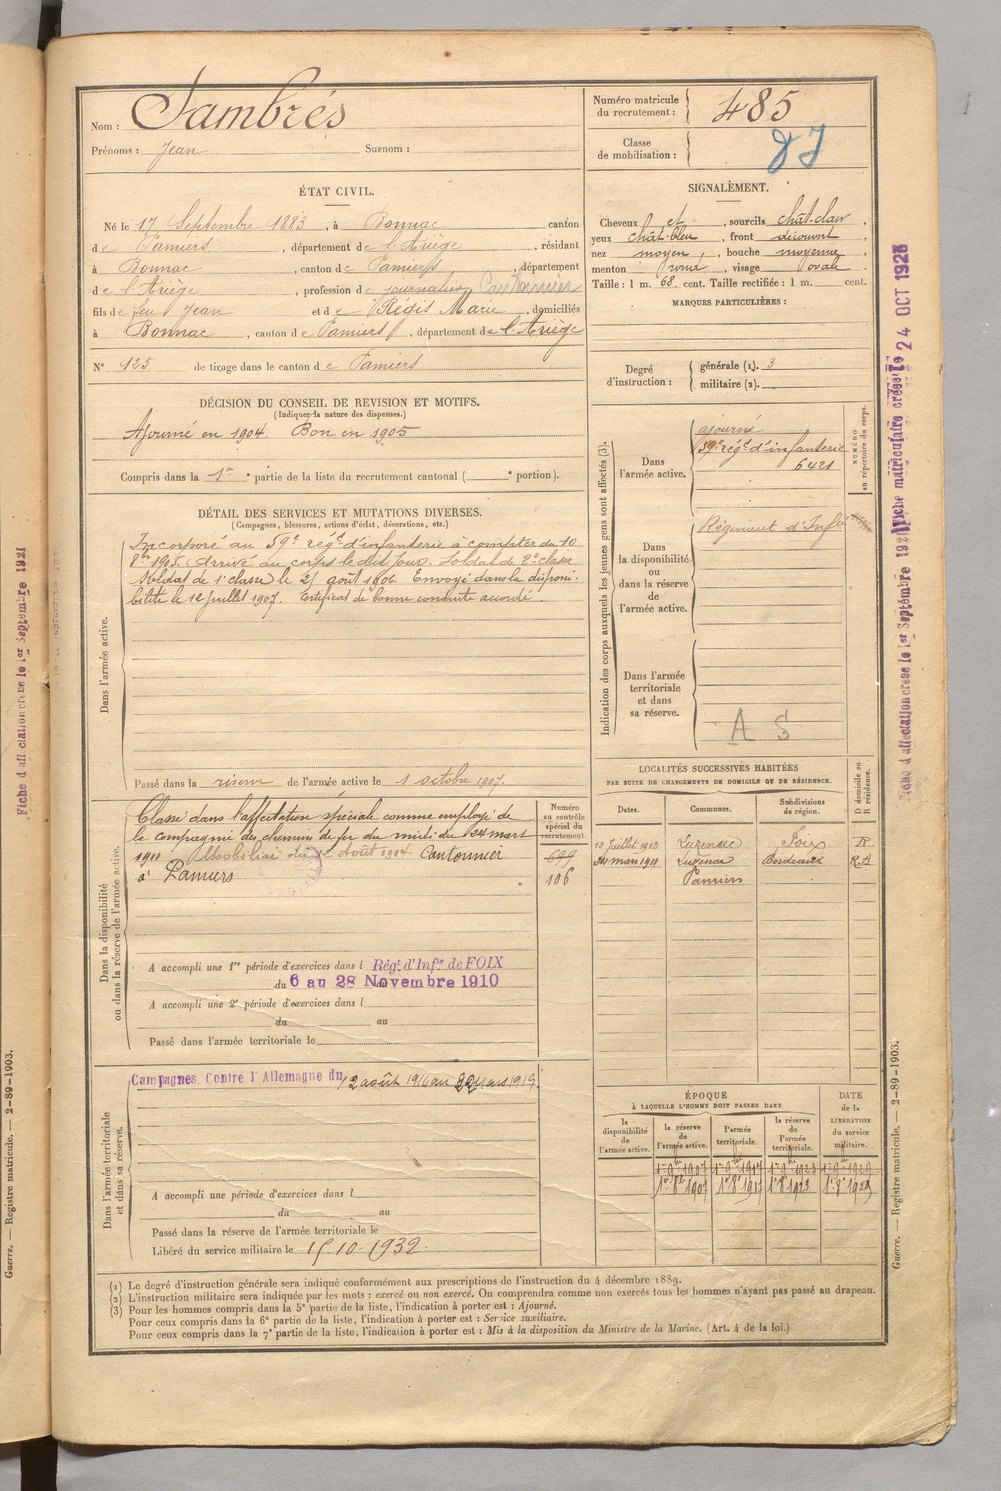 Nom : Jambrés
Prénoms : Jean Surnom :
Numéro matricule du recrutement : 485
Classe de mobilisation :
ÉTAT CIVIL.
Né le 17 Septembre 1883, à Bonnac canton
de Pamiers, département de l'Ariège, résidant
à Bonnac, canton de Pamiers, département
de l'Ariège, profession de journalier Cantonnier
fils de feu Jean et de Régis Marie, domiciliés
à Bonnac, canton de Pamiers, département de l'Ariège
N° 125 de tirage dans le canton de Pamiers
SIGNALEMENT.
Cheveux et, sourcils chât-clair,
yeux chât-bleu, front découvert,
nez moyen, bouche moyenne,
menton rond, visage ovale
Taille : 1 m. 68 cent. Taille rectifiée : 1 m. cent.
MARQUES PARTICULIÈRES :
Degré d'instruction : générale (1). 3
militaire (2).
DÉCISION DU CONSEIL DE REVISION ET MOTIFS.
(Indiquer la nature des dispenses.)
Ajourné en 1904. Bon en 1905
Compris dans la 1re partie de la liste du recrutement cantonal ( e portion).
DÉTAIL DES SERVICES ET MUTATIONS DIVERSES.
(Campagnes, blessures, actions d'éclat, décorations, etc.)
Dans l'armée active.
Incorporé au 59e régt d'infanterie à compter du 10
8bre 1905. Arrivé au corps le dit jour. Soldat de 2e classe.
Soldat de 1e classe le 25 août 1906. Envoyé dans la disponi-
bilité le 12 juillet 1907. Certificat de bonne conduite accordé.
Passé dans la réserve de l'armée active le 1 octobre 1907.
Indication des corps auxquels les jeunes gens sont affectés (3).
NUMÉRO au répertoire du corps.
Dans l'armée active.
ajourné
59e régt d'infanterie
6421
Dans la disponibilité ou dans la réserve de l'armée active.
Régiment d'Infie
Dans l'armée territoriale et dans sa réserve.
A S
Dans la disponibilité ou dans la réserve de l'armée active.
Classé dans l'affectation spéciale comme employé de
la compagnie des chemins de fer du midi du 24 mars
1911 Mobilisé du 2 Août 1914 Cantonnier
à Pamiers
Numéro au contrôle spécial du recrutement.
699
106
A accompli une 1re période d'exercices dans l Régt d'Infie de FOIX
du 6 au 28 Novembre 1910
A accompli une 2e période d'exercices dans l
du au
Passé dans l'armée territoriale le
LOCALITÉS SUCCESSIVES HABITÉES
PAR SUITE DE CHANGEMENTS DE DOMICILE OU DE RÉSIDENCE.
Dates. Communes. Subdivisions de région. D domicile ou R résidence.
10 juillet 1910 Luzenac Foix R.
24 mars 1911 Luzenac Bordeaux R.D
Pamiers
Dans l'armée territoriale et dans sa réserve.
Campagnes Contre l'Allemagne du 2 août 1914 au 22 mars 1919
A accompli une période d'exercices dans l
du au
Passé dans la réserve de l'armée territoriale le
Libéré du service militaire le 15-10-1932.
ÉPOQUE
À LAQUELLE L'HOMME DOIT PASSER DANS
DATE de la LIBÉRATION du service militaire.
la disponibilité de l'armée active. la réserve de l'armée active. l'armée territoriale. la réserve de l'armée territoriale.
(1) Le degré d'instruction générale sera indiqué conformément aux prescriptions de l'instruction du 4 décembre 1889.
(2) L'instruction militaire sera indiquée par les mots : exercé ou non exercé. On comprendra comme non exercés tous les hommes n'ayant pas passé au drapeau.
(3) Pour les hommes compris dans la 5e partie de la liste, l'indication à porter est : Ajourné.
Pour ceux compris dans la 6e partie de la liste, l'indication à porter est : Service auxiliaire.
Pour ceux compris dans la 7e partie de la liste, l'indication à porter est : Mis à la disposition du Ministre de la Marine. (Art. 4 de la loi.)
Fiche d'affectation créée le 1er Septembre 1921
Fiche matriculaire créée le 24 OCT 1928
Fiche d'affectation créée le 1er Septembre 1921
Guerre. — Registre matricule. — 2-89-1903.
Guerre. — Registre matricule. — 2-89-1903.